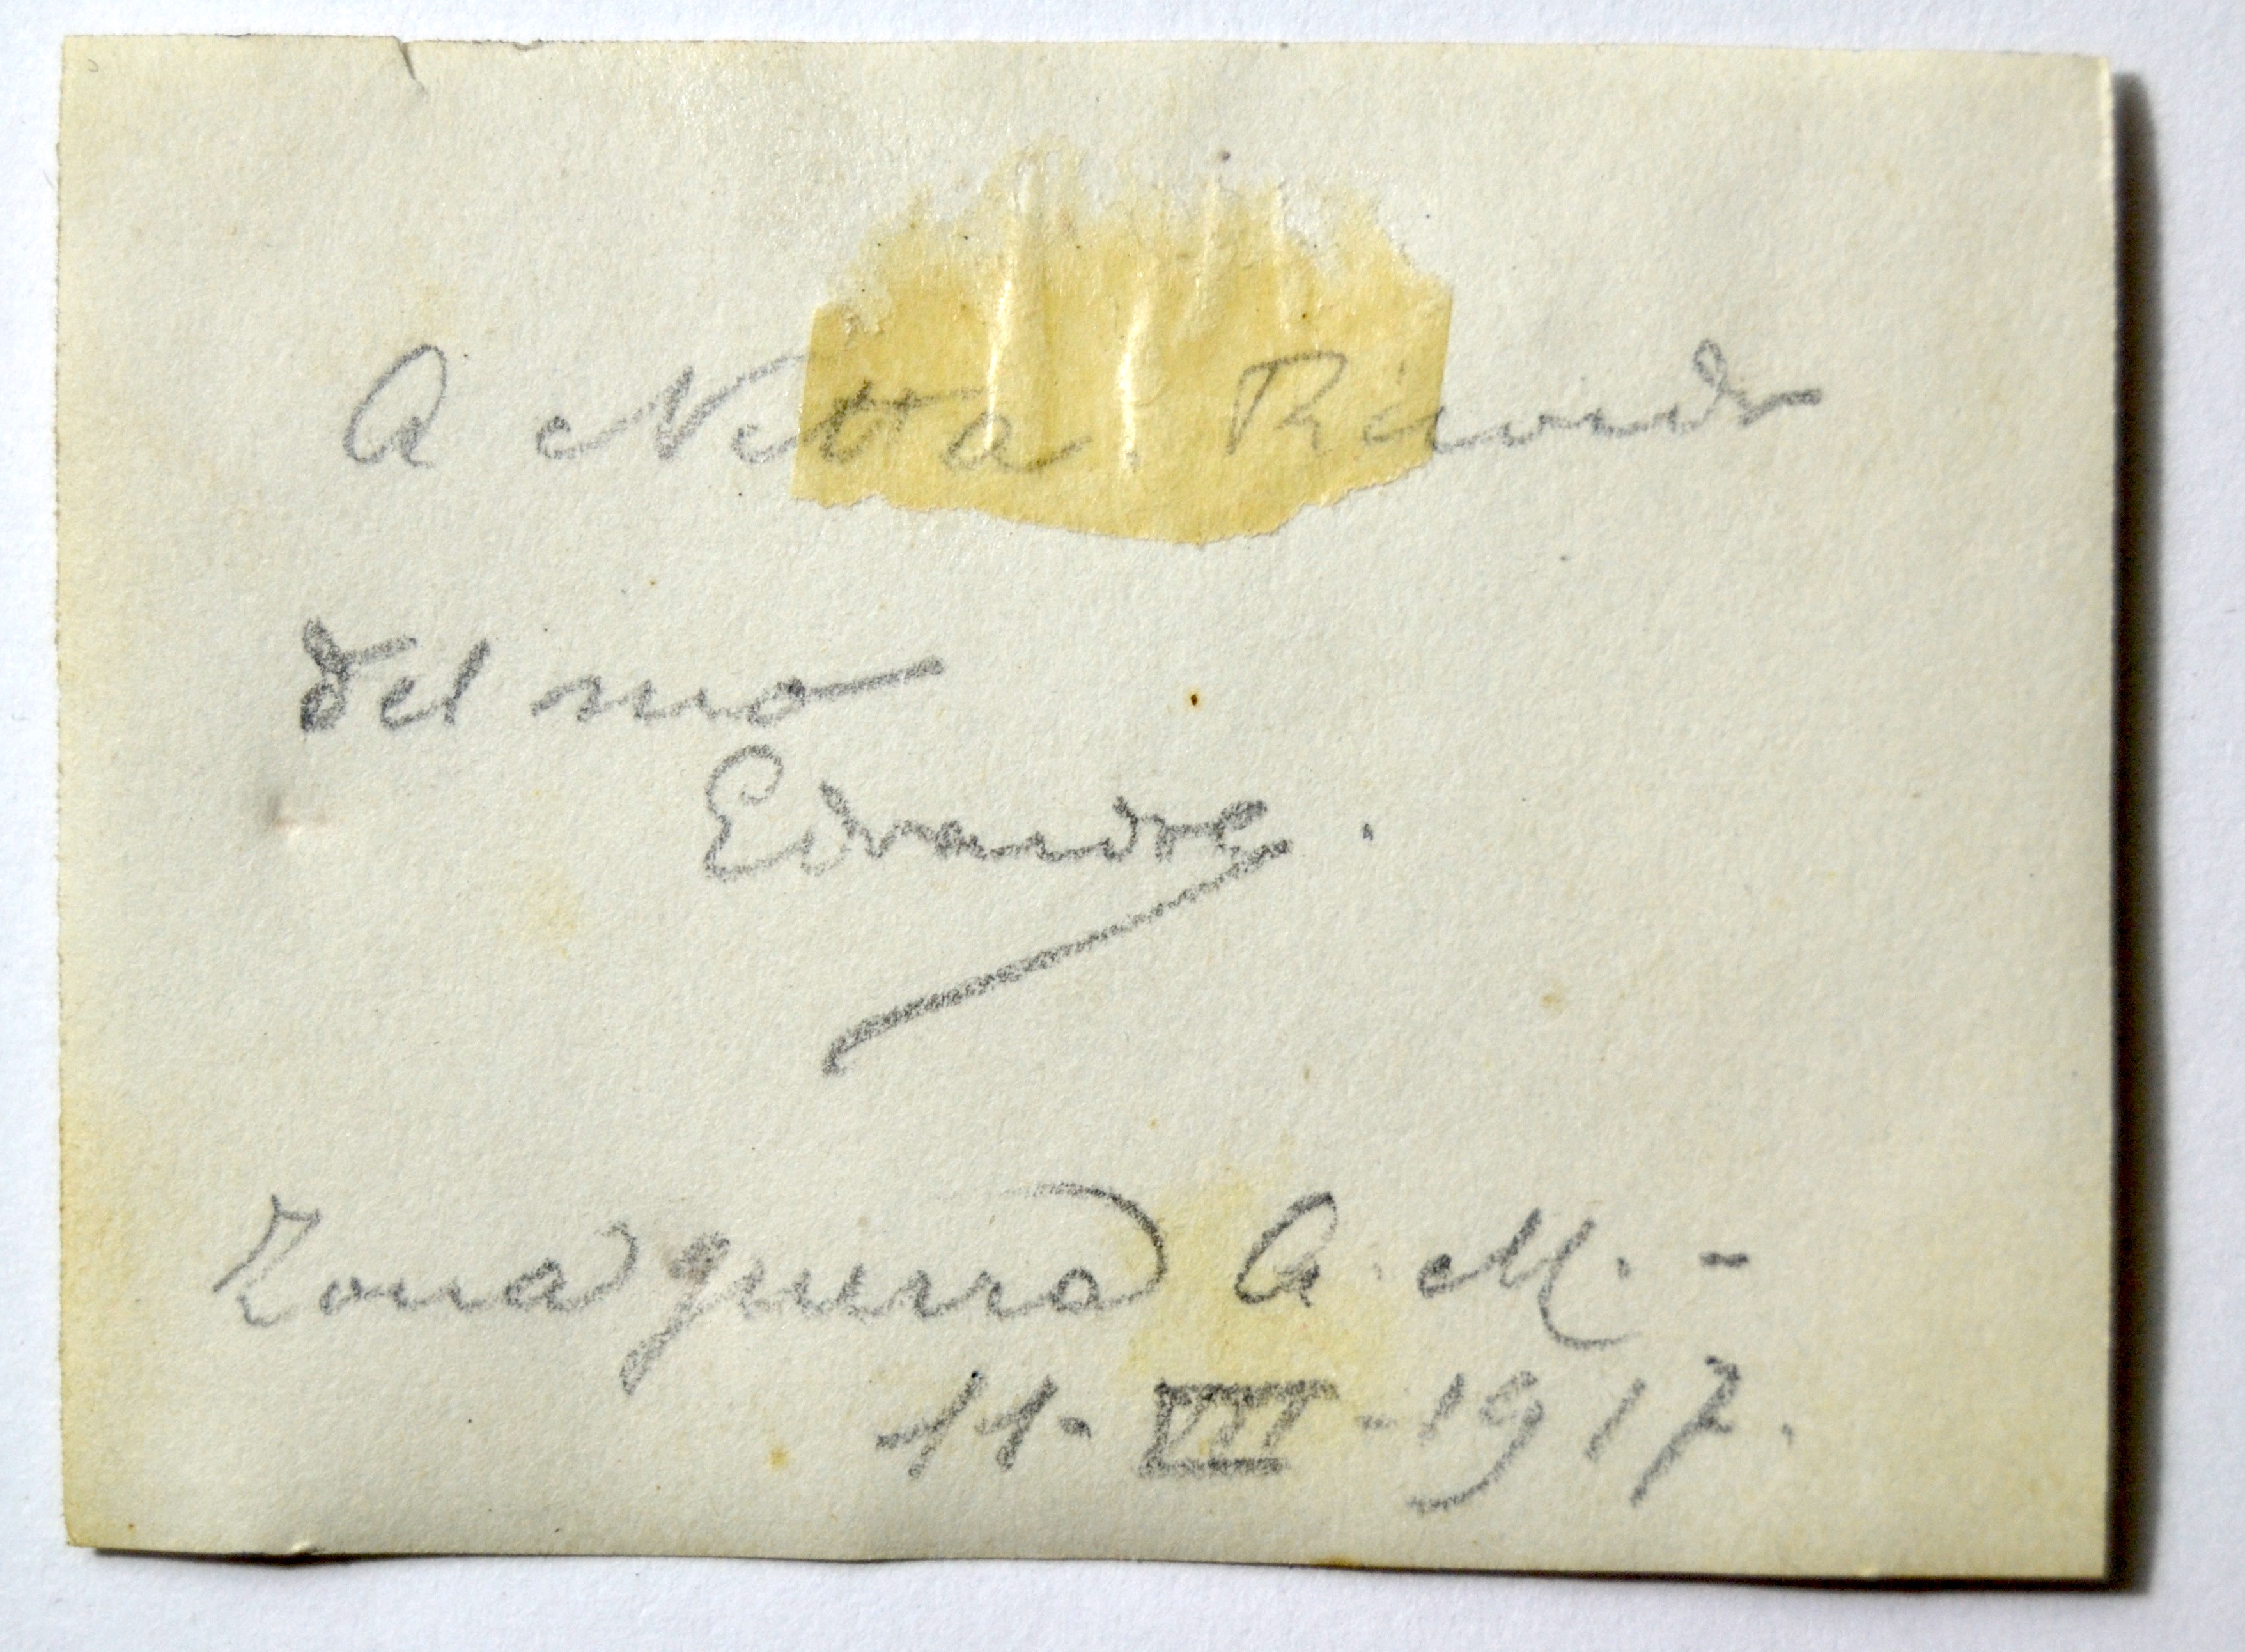 A Netta. Ricordo
del suo
Edoardo.
Zona guerra A. M. -
11- VII - 1917.